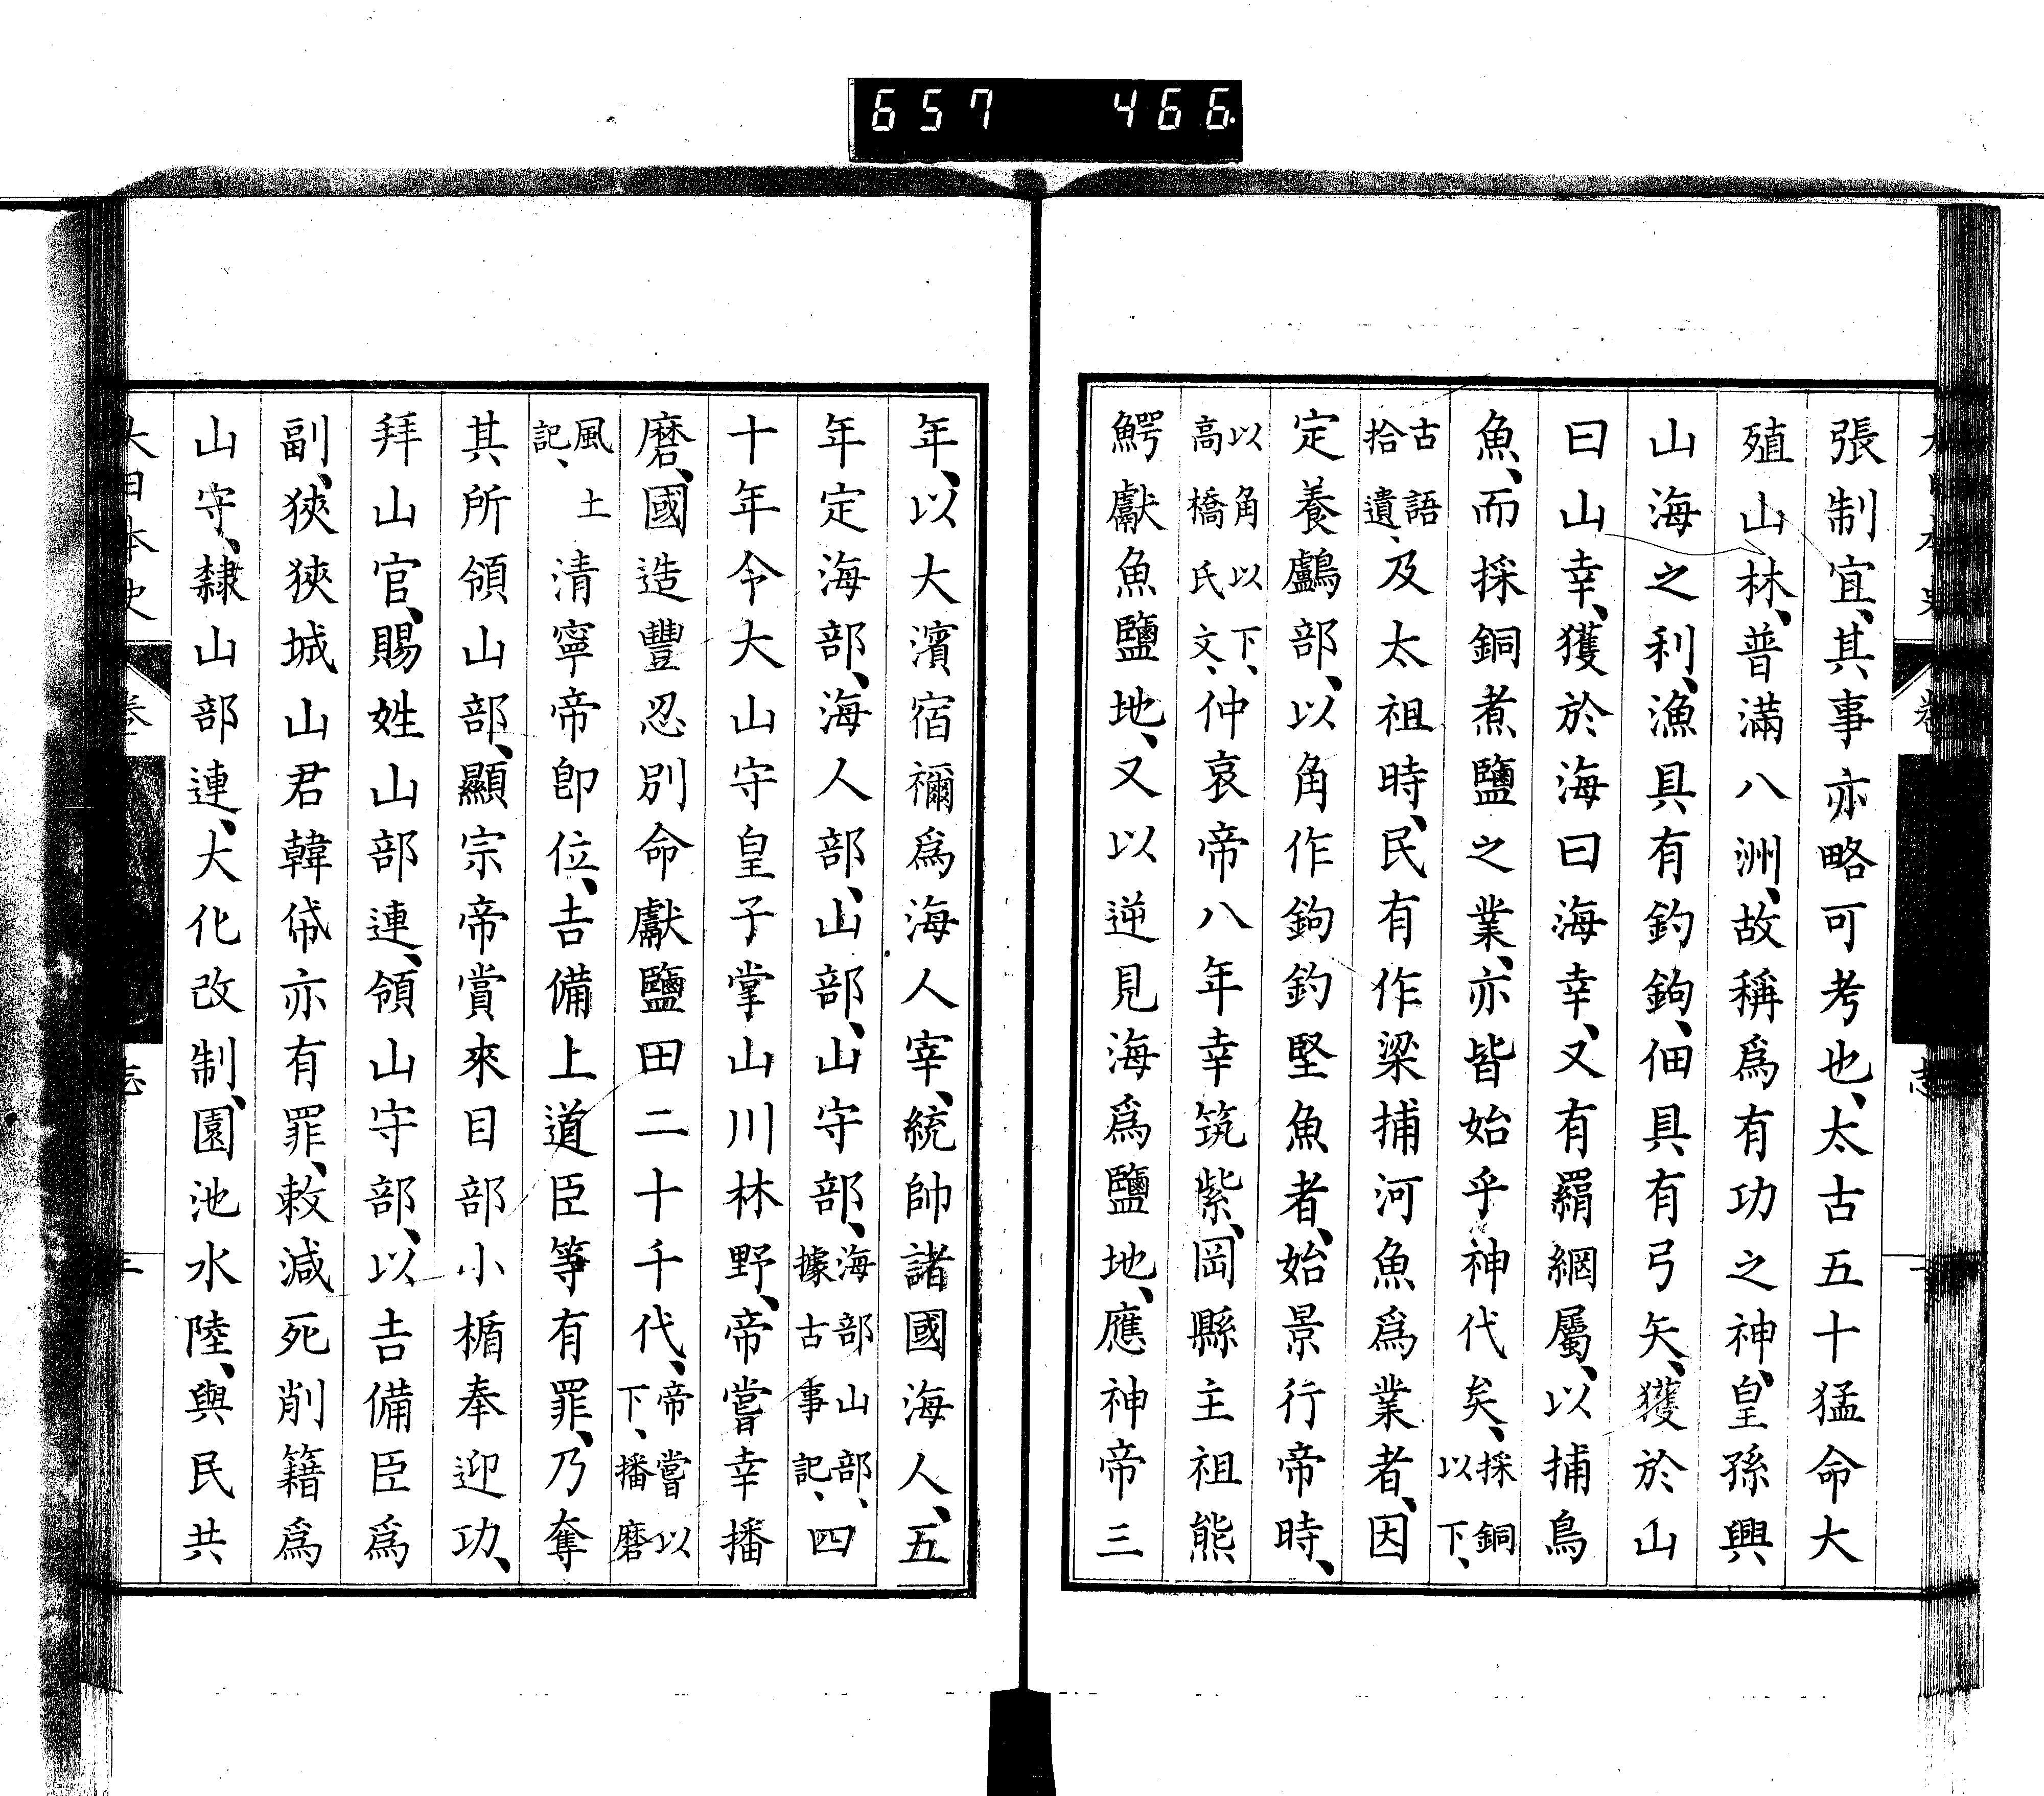 657 466.
張制宜、其事亦略可考也、太古五十猛命大
殖山林、普滿八洲、故稱爲有功之神、皇孫興
山海之利、漁具有釣鉤、佃具有弓矢、獲於山
曰山幸、獲於海曰海幸、又有羂網屬、以捕鳥
魚、而採銅煮鹽之業、亦皆始乎神代矣、採銅以下、
古語拾遺、及太祖時、民有作梁捕河魚爲業者、因
定養鸕部、以角作鉤釣堅魚者、始景行帝時、
以角以下、高橋氏文、仲哀帝八年幸筑紫、岡縣主祖熊
鰐獻魚鹽地、又以逆見海爲鹽地、應神帝三
年、以大濱宿禰爲海人宰、統帥諸國海人、五
年定海部、海人部、山部、山守部、海部山部、據古事記、四
十年令大山守皇子掌山川林野、帝嘗幸播
磨、國造豐忍別命獻鹽田二十千代、帝嘗以下、播磨
風土記、清寧帝卽位、吉備上道臣等有罪、乃奪
其所領山部、顯宗帝賞來目部小楯奉迎功、
拜山官、賜姓山部連、領山守部、以吉備臣爲
副、狹狹城山君韓帒亦有罪、敕減死削籍爲
山守、隸山部連、大化改制、園池水陸、與民共
大日本史 卷 志